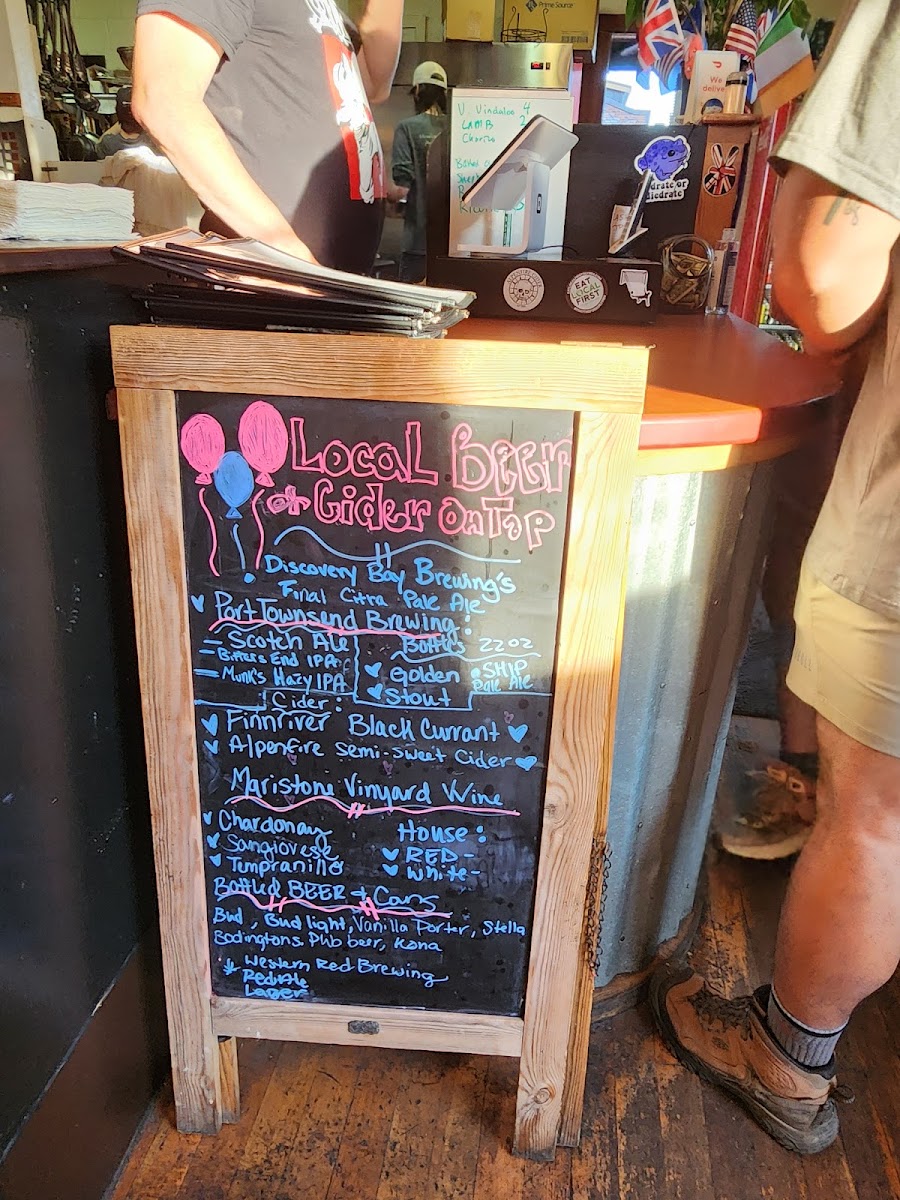 Prime Source
We
deliver
V. Vindaloo 4
LAMB 2
Hydrate or
Diedrate
EAT
LOCAL
FIRST
Local Beer
or Cider On Tap
Discovery Bay Brewing's
Final Citra Pale Ale
Port Townsend Brewing:
Scotch Ale
Bitters End IPA
Munk's Hazy IPA
Bottles 22 oz
Golden
Stout
SHIP
Pale Ale
Cider:
Finnriver Black Currant
Alpenfire semi-sweet Cider
Maristone Vinyard Wine
Chardonay
Sangiovese
Tempranillo
House:
RED-
White-
Bottled BEER + Cans
Bud, Bud light, Vanilla Porter, Stella
Bodingtons Pub beer, Kona
Western Red Brewing
Red Ale
Lager